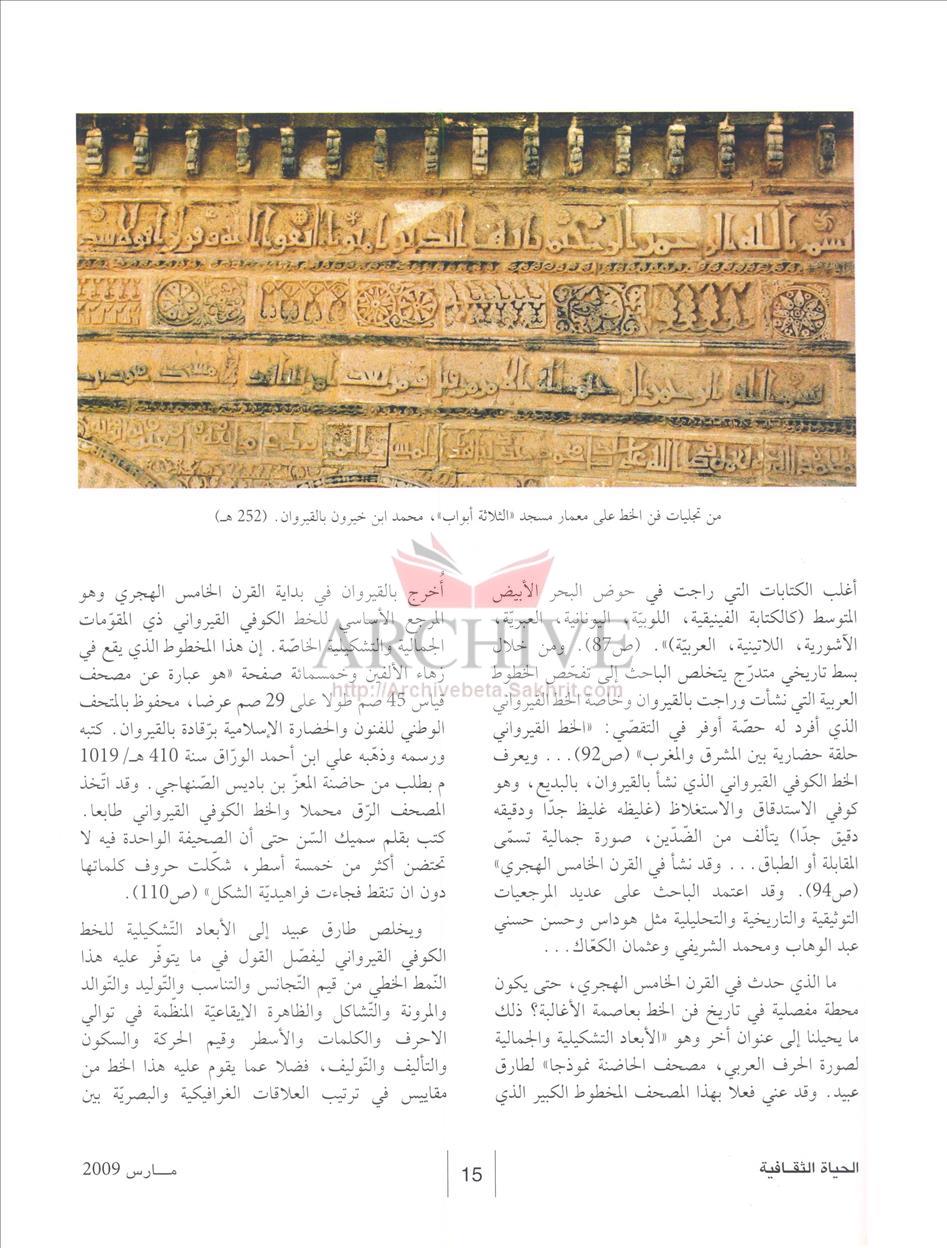 بسم الله الرحمن الرحيم
من تجليات فن الخط على معمار مسجد «الثلاثة أبواب»، محمد ابن خيرون بالقيروان. (252 هـ)
أغلب الكتابات التي راجت في حوض البحر الأبيض
المتوسط (كالكتابة الفينيقية، اللوبيّة، اليونانية، العبريّة،
الآشورية، اللاتينية، العربيّة)». (ص87). ومن خلال
بسط تاريخي متدرّج يتخلص الباحث إلى تفحّص الخطوط
العربية التي نشأت وراجت بالقيروان وخاصّة الخط القيرواني
الذي أفرد له حصّة أوفر في التقصّي: «الخط القيرواني
حلقة حضارية بين المشرق والمغرب» (ص92)... ويعرف
الخط الكوفي القيرواني الذي نشأ بالقيروان، بالبديع، وهو
كوفي الاستدقاق والاستغلاظ (غليظه غليظ جدّا ودقيقه
دقيق جدّا) يتألف من الضّدّين، صورة جمالية تسمّى
المقابلة أو الطباق... وقد نشأ في القرن الخامس الهجري»
(ص94). وقد اعتمد الباحث على عديد المرجعيات
التوثيقية والتاريخية والتحليلية مثل هوداس وحسن حسني
عبد الوهاب ومحمد الشريفي وعثمان الكعّاك...
ما الذي حدث في القرن الخامس الهجري، حتى يكون
محطة مفصلية في تاريخ فن الخط بعاصمة الأغالبة؟ ذلك
ما يحيلنا إلى عنوان أخر وهو «الأبعاد التشكيلية والجمالية
لصورة الحرف العربي، مصحف الحاضنة نموذجا» لطارق
عبيد. وقد عني فعلا بهذا المصحف المخطوط الكبير الذي
أُخرج بالقيروان في بداية القرن الخامس الهجري وهو
المرجع الأساسي للخط الكوفي القيرواني ذي المقوّمات
الجمالية والتشكيلية الخاصّة. إن هذا المخطوط الذي يقع في
زهاء الألفين وخمسمائة صفحة «هو عبارة عن مصحف
قياس 45 صم طولا على 29 صم عرضا، محفوظ بالمتحف
الوطني للفنون والحضارة الإسلامية برّقادة بالقيروان. كتبه
ورسمه وذهّبه علي ابن أحمد الورّاق سنة 410 هـ/ 1019
م بطلب من حاضنة المعزّ بن باديس الصّنهاجي. وقد اتّخذ
المصحف الرّق محملا والخط الكوفي القيرواني طابعا.
كتب بقلم سميك السّن حتى أن الصحيفة الواحدة فيه لا
تحتضن أكثر من خمسة أسطر، شكّلت حروف كلماتها
دون ان تنقط فجاءت فراهيديّة الشكل» (ص110).
ويخلص طارق عبيد إلى الأبعاد التّشكيلية للخط
الكوفي القيرواني ليفصّل القول في ما يتوفّر عليه هذا
النّمط الخطي من قيم التّجانس والتناسب والتّوليد والتّوالد
والمرونة والتّشاكل والظاهرة الإيقاعيّة المنظّمة في توالي
الاحرف والكلمات والأسطر وقيم الحركة والسكون
والتأليف والتّوليف، فضلا عما يقوم عليه هذا الخط من
مقاييس في ترتيب العلاقات الغرافيكية والبصريّة بين
ARCHIVE
http://Archivebeta.Sakhrit.com
الحياة الثقافية
15
مارس 2009